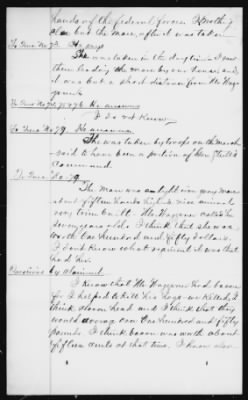 hands of the federal forces. Nothing
else but the mare, after it was taken
To Inter No 73. He says
She was taken in the day time I saw
them leading the mare by our house and
it was but a short distance from Mr Hag
To Inter No 74, 75 & 76 He answers
I do not know
To Inter No 79. He answers
She was taken by troops on the march
said to have been a portion of Gen
Command.
To Inter No 79.
The mare was a light iron gray mare
about fifteen hands high & nice animal
very trim built. Mr called her
seven years old. I think that she was
worth One hundred and fifty dollars.
I dont know what regiment it was that
had her.
Questions by claimant
I know that Mr had bacon
for I helped to kill his hogs we killed, I
think eleven head and I think that they
would average over One hundred and fifty
pounds. I think bacon was worth about
fifteen cents at that time. I know also